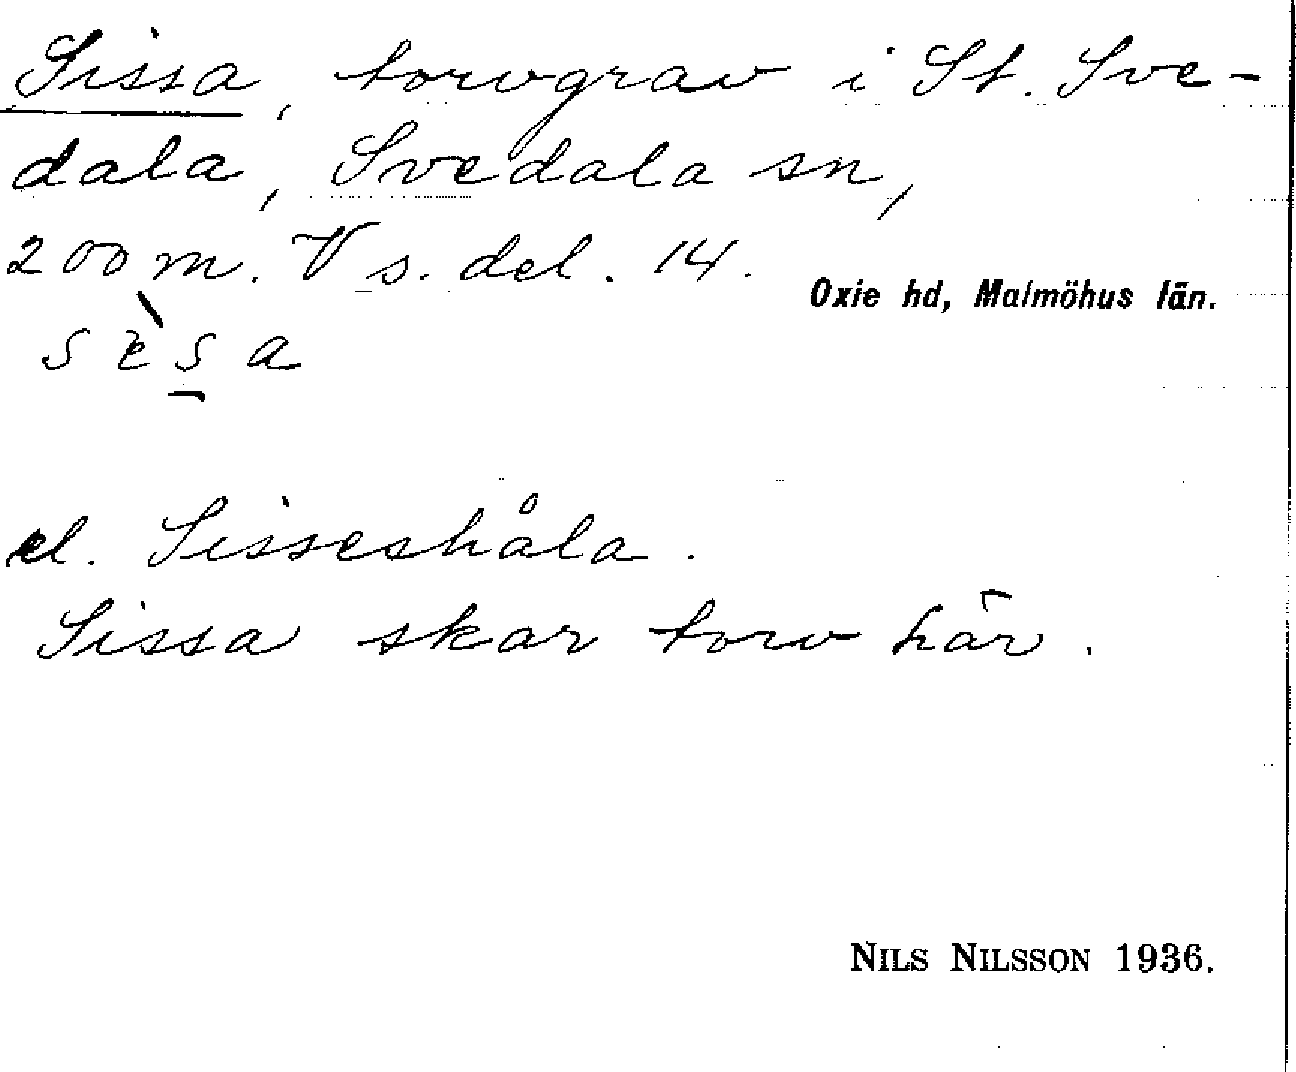 Sissa, torvgrav i St. Sve-
dala, Svedala sn,
200 m. V s. del. 14.
Oxie hd, Malmöhus län.
sès̱a
el. Sisseshåla.
Sissa skar torv här.
NILS NILSSON 1936.